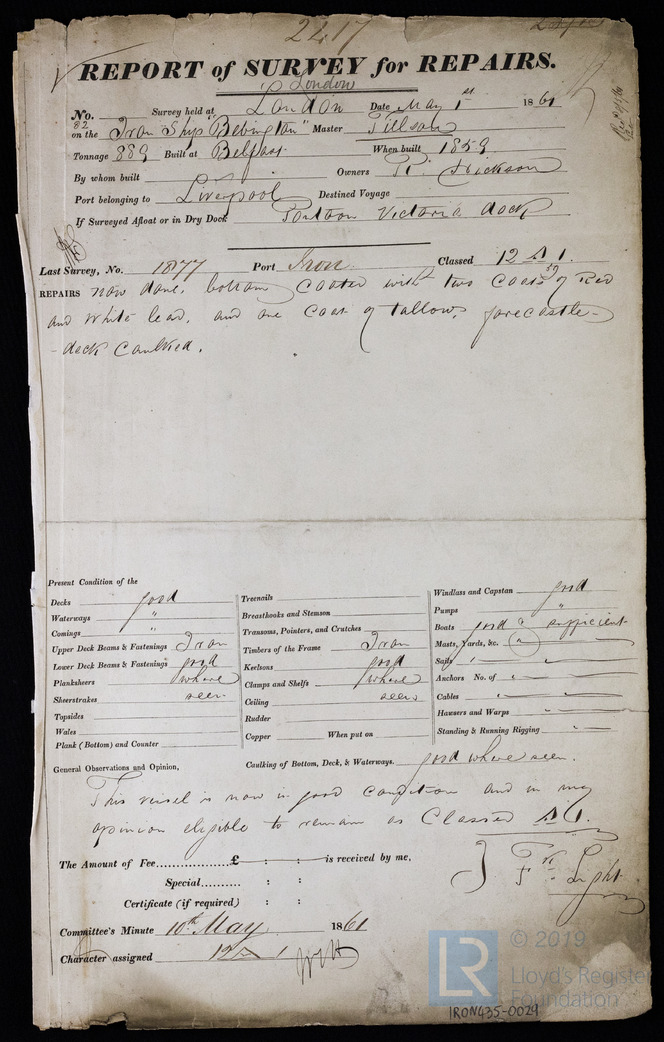 2417
REPORT of SURVEY for REPAIRS.
London
No. 82 Survey held at London Date May 1st 1861
on the Iron Ship "Bebington" Master Tillson
Tonnage 889 Built at Belfast When built 1859
By whom built Owners R. Dickson
Port belonging to Liverpool Destined Voyage
If Surveyed Afloat or in Dry Dock Pontoon Victoria dock
Last Survey, No. 18177 Port Iron Classed 12 A 1. 59
REPAIRS now done, bottom coated with two coats of Red
and White lead, and one coat of tallow, forecastle-
-deck caulked.
Present Condition of the
Decks good
Waterways "
Comings "
Upper Deck Beams & Fastenings Iron
Lower Deck Beams & Fastenings good
Planksheers where
Sheerstrakes seen
Topsides
Wales
Plank (Bottom) and Counter
Treenails
Breasthooks and Stemson
Transoms, Pointers, and Crutches
Timbers of the Frame Iron
Keelsons good
Clamps and Shelfs where
Ceiling seen
Rudder
Copper When put on
Windlass and Capstan good
Pumps "
Boats good & sufficient
Masts, Yards, &c. "
Sails " "
Anchors No. of " "
Cables " "
Hawsers and Warps " "
Standing & Running Rigging "
General Observations and Opinion, Caulking of Bottom, Deck, & Waterways. good where seen.
This vessel is now in good condition and in my
opinion eligible to remain as Classed A 1.
The Amount of Fee £ : : is received by me,
Special : :
Certificate (if required) : :
Fk. Light
Committee's Minute 10th May 1861
Character assigned 12 A 1
LR
© 2019
Lloyd's Register
Foundation
IRON435-0029